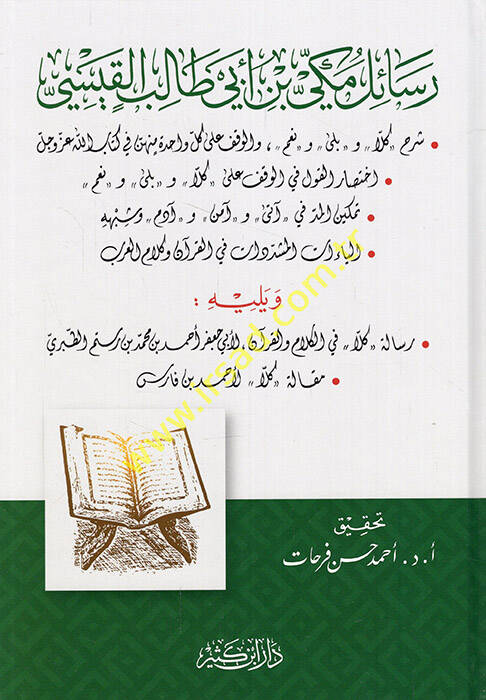 رسائل مكي بن أبي طالب القيسي
• شرح «كلا» و «بلى» و «نعم»، والوقف على كل واحدة منهن في كتاب الله عز وجل
• اختصار القول في الوقف على «كلا» و «بلى» و «نعم»
• تمكين المد في «آتى» و «آمن» و «آدم» وشبهه
• الياءات المشددات في القرآن وكلام العرب
ويليه :
• رسالة «كلا» في الكلام والقرآن، لأبي جعفر أحمد بن محمد بن رستم الطبري
• مقالة «كلا» لأحمد بن فارس
www.irsad.com.tr
تحقيق
أ. د. أحمد حسن فرحات
دار ابن كثير